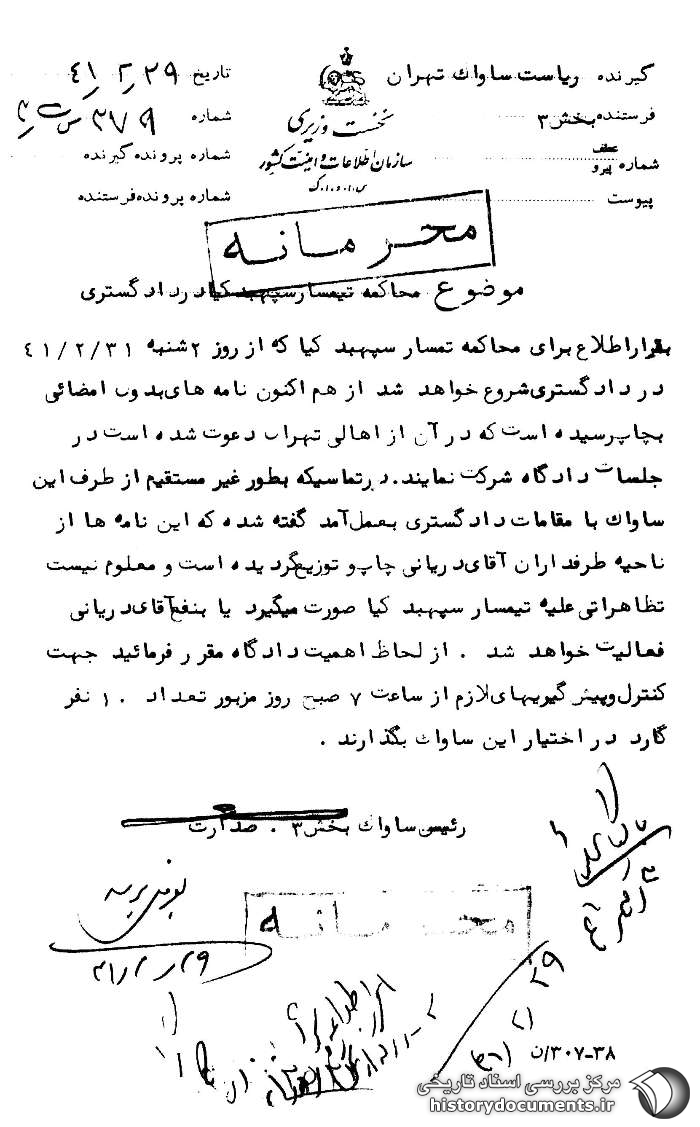 گیرنده ریاست ساواک تهران
تاریخ ۴۱/۲/۲۹
فرستنده بخش ۳
نخست وزیری
شماره ۳۷۹
عطف
شماره پیرو
سازمان اطلاعات و امنیت کشور
شماره پرونده گیرنده
س.ا.و.ا.ک
پیوست
شماره پرونده فرستنده
محرمانه
موضوع محاکمه تیمسار سپهبد کیا در دادگستری
بقرار اطلاع برای محاکمه تمسار سپهبد کیا که از روز ۲ شنبه ۴۱/۲/۳۱
در دادگستری شروع خواهد شد از هم اکنون نامه های بدون امضائی
بچاپ رسیده است که در آن از اهالی تهران دعوت شده است در
جلسات دادگاه شرکت نمایند. در تماسیکه بطور غیر مستقیم از طرف این
ساواک با مقامات دادگستری بعمل آمد گفته شده که این نامه ها از
ناحیه طرفداران آقای دریانی چاپ و توزیع گردیده است و معلوم نیست
تظاهراتی علیه تیمسار سپهبد کیا صورت میگیرد یا بنفع آقای دریانی
فعالیت خواهد شد . از لحاظ اهمیت دادگاه مقرر فرمائید جهت
کنترل و پیش گیریهای لازم از ساعت ۷ صبح روز مزبور تعداد ۱۰ نفر
گارد در اختیار این ساواک بگذارند .
رئیس ساواک بخش ۳ . صدارت
محرمانه
۴۱/۲/۲۹
۳۰۷-۳۸/ن
مرکز بررسی اسناد تاریخی
historydocuments.ir